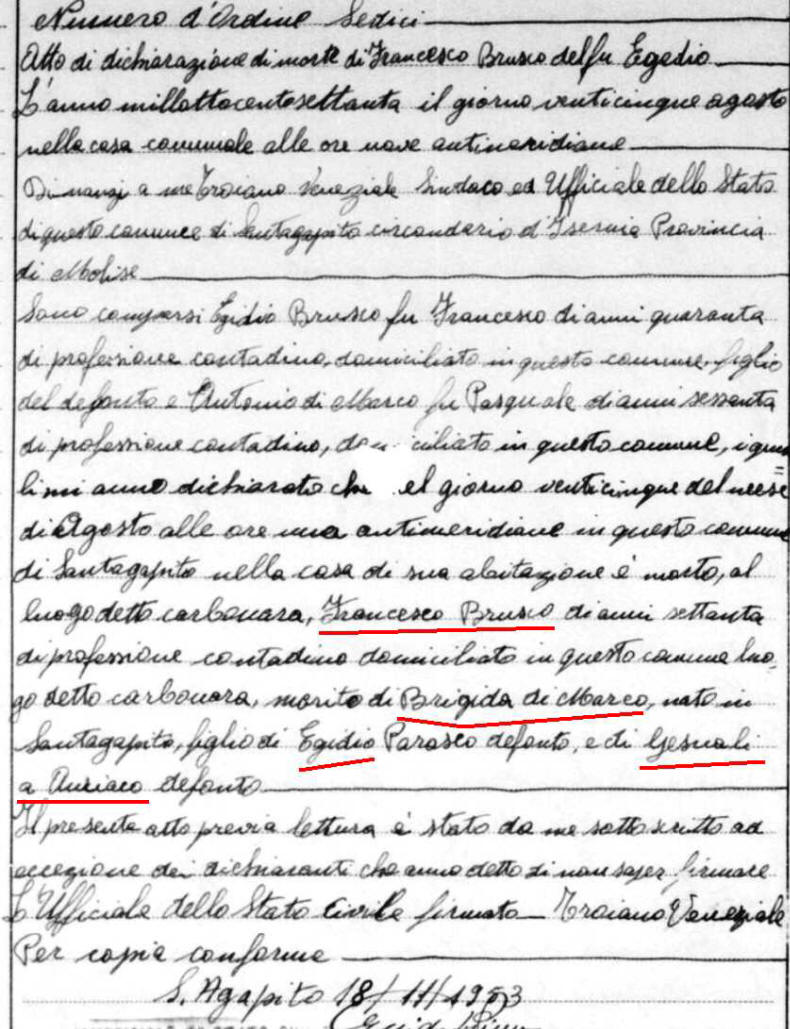 Numero d'Ordine Sedici
Atto di dichiarazione di morte di Francesco Brusco del fu Egedio
L'anno millottocentosettanta il giorno venticinque agosto
nella casa comunale alle ore nove antimeridiane
Dinanzi a me Troiano Veneziale Sindaco ed Ufficiale dello Stato
di questo comune di Santagapito circondario d'Isernia Provincia
di Molise
Sono comparsi Egidio Brusco fu Francesco di anni quaranta
di professione contadino, domiciliato in questo comune, figlio
del defonto e Antonio di Marco fu Pasquale di anni sessanta
di professione contadino, do ciliato in questo comune, i qua
li mi anno dichiarato che el giorno venticinque del mese
di Agosto alle ore una antimeridiane in questo comune
di Santagapito nella casa di sua abitazione è morto, al
luogo detto carbonara, Francesco Brusco di anni settanta
di professione contadino domiciliato in questo comune luo
go detto carbonara, marito di Brigida di Marco, nato in
Santagapito, figlio di Egidio Parasco defonto, e di Gesuali
a defonto
Il presente atto previa lettura è stato da me sottoscritto ad
eccezione dei dichiaranti che anno detto di non saper firmare
L'Ufficiale dello Stato Civile firmato Troiano Veneziale
Per copia conforme
S. Agapito 18/11/1953